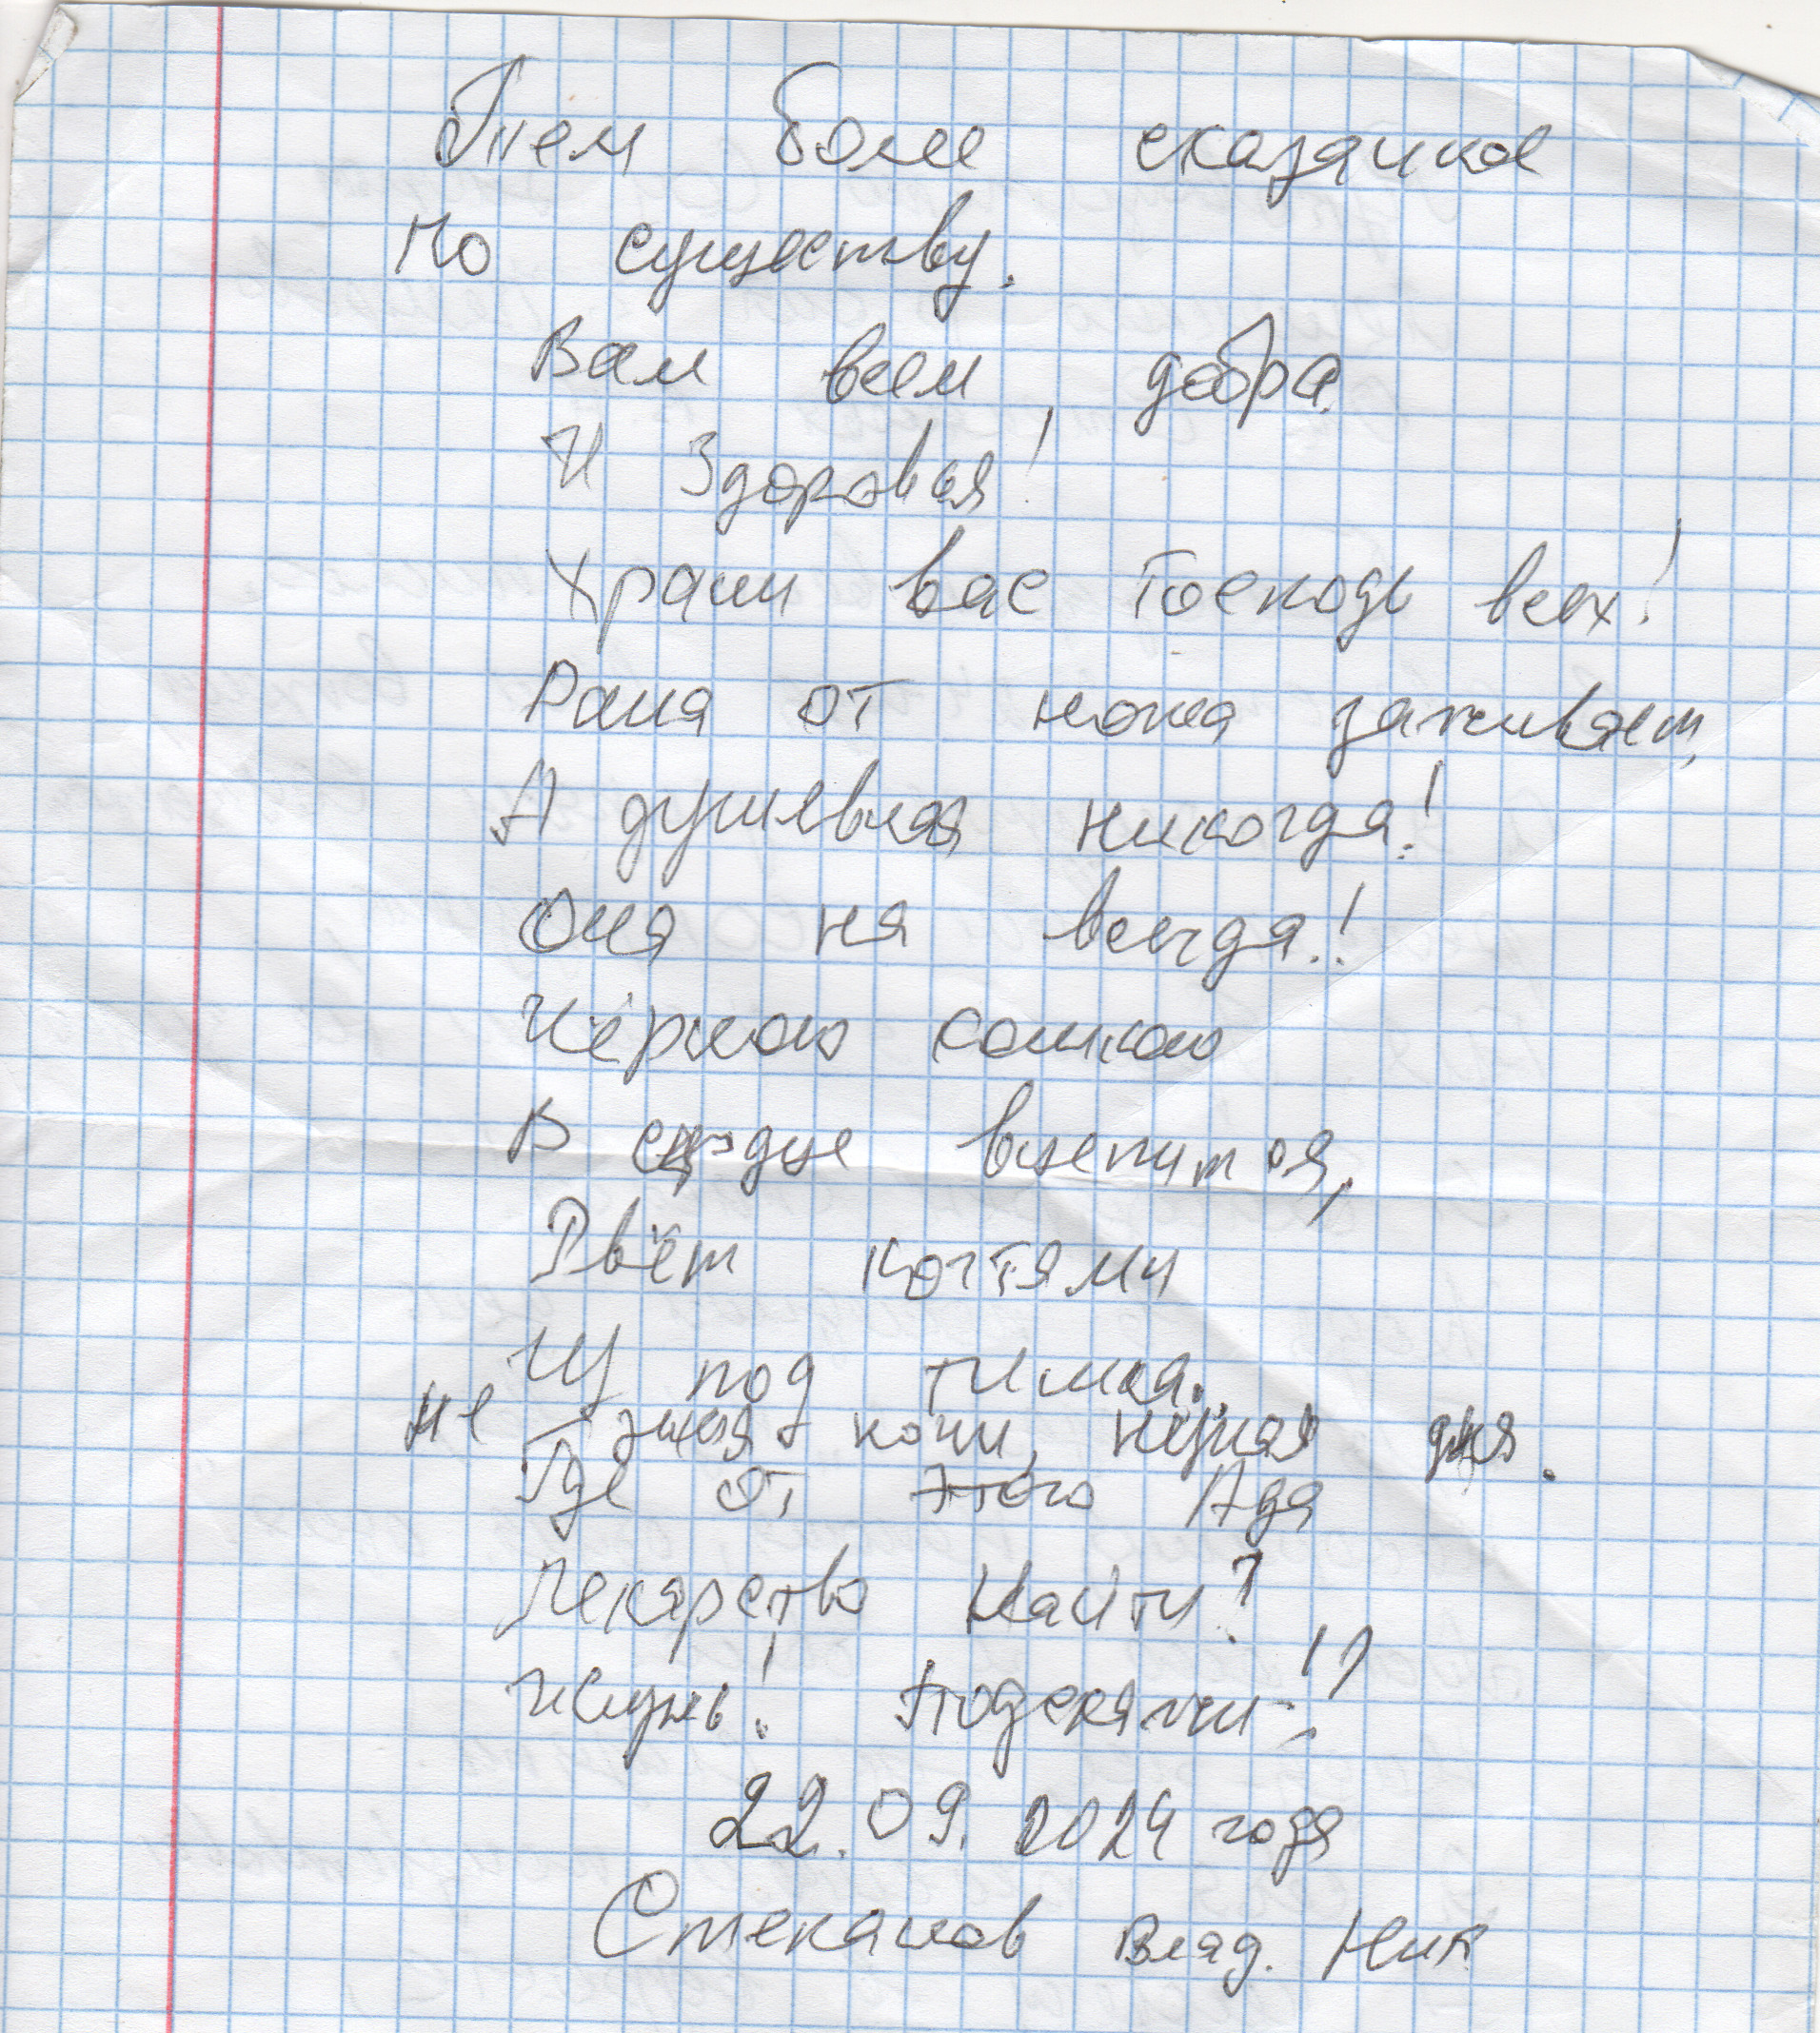 Тем более сказанное
по существу.
Вам всем, добра
И Здоровья!
Храни вас Господь всех!
Рана от ножа заживает,
А душевная никогда!
Она на всегда!!
Чёрною кошкою
В сердце вцепится,
Рвёт когтями
Из под тишка.
не зная ночи, не зная дня.
Где от этого Ада
Лекарство Найти?
Жизнь! Подскажи!!
22.09.2024 года
Стеканов Влад. Ник.